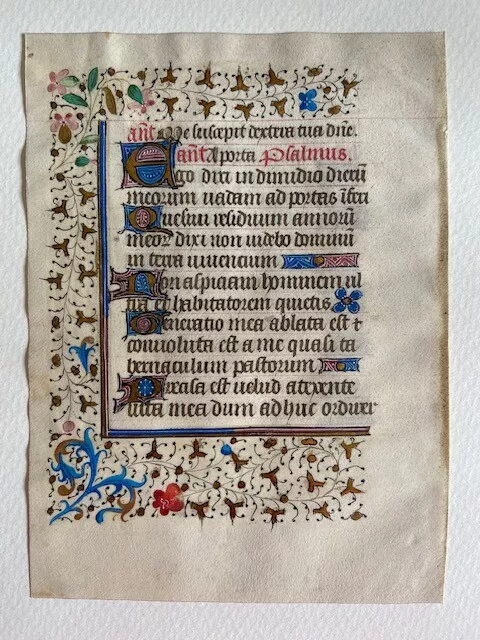 ant Me suscepit dextera tua dñe.
ant A porta Psalmus.
Ego dixi in dimidio dierũ
meorum uadam ad portas ĩferi
Quesiui residuum annorũ
meorũ dixi non uidebo dominũ
in terra uiuencium
Non aspiciam hominem ul
tra et habitatorem quietis
Generatio mea ablata est ⁊
conuoluta est a me quasi ta
bernaculum pastorum
Precisa est uelud a texente
uita mea dum adhuc ordirer